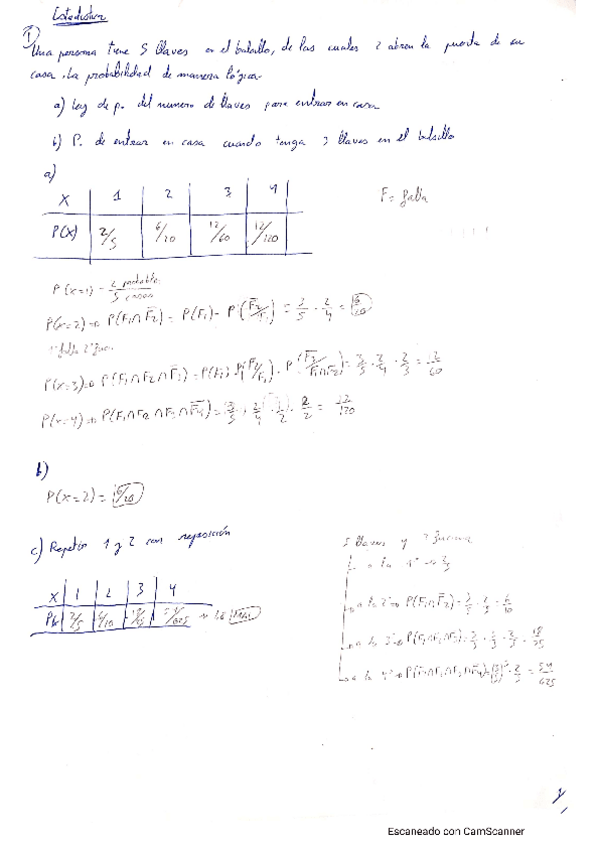 Estadística
①
Una persona tiene 5 llaves en el bolsillo, de las cuales 2 abren la puerta de su
casa. La probabilidad de manera lógica.
a) Ley de p. del numero de llaves para entrar en casa
b) P. de entrar en casa cuando tenga 3 llaves en el bolsillo
a)
X 1 2 3 4
P(X) 2/5 6/20 12/60 12/120
F = falla
P(x=1) = 2 probables / 5 casos
P(x=2) = P(F₁∩F̄₂) = P(F₁) · P(F̄₂/F₁) = 3/5 · 2/4 = 6/20
P(x=3) = P(F₁∩F₂∩F̄₃) = P(F₁) · P(F₂/F₁) · P(F̄₃/F₁∩F₂) = 3/5 · 2/4 · 2/3 = 12/60
P(x=4) = P(F₁∩F₂∩F₃∩F̄₄) = 3/5 · 2/4 · 1/3 · 2/2 = 12/120
b)
P(x=2) = 6/20
c) Repetir 1 y 2 con reposición
X 1 2 3 4
2/5
5 llaves y 2
la 1ª → 2/5
a la 2ª → P(F₁∩F̄₂) = 3/5 · 2/5 =
a la 3ª → P(F₁∩F₂∩F̄₃) = 3/5 · 3/5 · 2/5 =
a la 4ª → P(F₁∩F₂∩F₃∩F̄₄) = (3/5)³ · 2/5 = 54/625
Escaneado con CamScanner